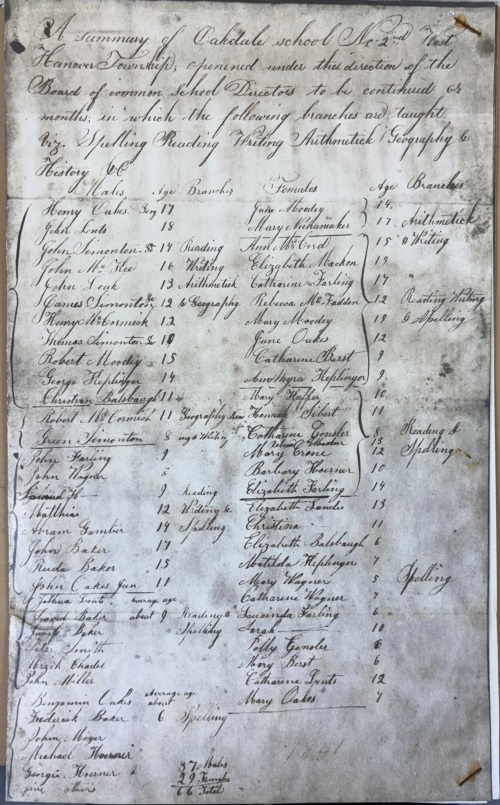 A summary of Oakdale school No 2nd West
Hanover Township, openened under the direction of the
Board of common School Directors to be continued
months, in which the following branches are taught.
Viz. Spelling Reading Writing Arithmetick Geography &
History &C
Males Age Branches Females Age Branches
Henry Oakes 17 Jane Moodey 14
John Lents 18 Mary 17 Arithmetick
John Simonton 14 Reading Ann McCord 15 & Writing
John McKee 16 Writing Elizabeth 13
John 13 Arithmetick Catharine Farling 17 "
James Simonton 12 & Geography Rebecca McFadden 12 Reading Writing
Henry McCormick 12 Mary Moodey 19 & Spelling
Thomas Simonton 10 Jane Oakes 12
Robert Moodey 15 Catharine Berst 9
George Heplinger 14 Heplinger 9
Christian Balsbaugh 11 Mary 10
Robert McCormick 11 Geography Hannah 11
Green Simonton 8 & Writing Catharine Gensler 8 Reading &
13
John Farling 9 Mary Crone 12 Spelling
John Wagner 8 Barbary Hoerner 10
9 Reading Elizabeth Farling 14
Matthias 12 Writing & Elizabeth 13
Abram 14 Spelling Christina 11
John Baker 17 Elizabeth Balsbaugh 6
Baker 15 Matilda Heplinger 7
John Oakes Jun 11 Mary Wagner 5 Spelling
Joshua average age Catharine Wagner 7
David Baker about 9 Reading & Lucinda Farling 6
Baker Spelling Sarah 10
Smith Polly Gensler 8
Mary Berst 6
John Miller Catharine Lents 12
Benjamin Oakes Average age about Mary Oakes 7
Frederick Baker 6 Spelling
John Moyer
Michael Hoerner
George Hoerner & 37 Males
others 29 Females
66 Total